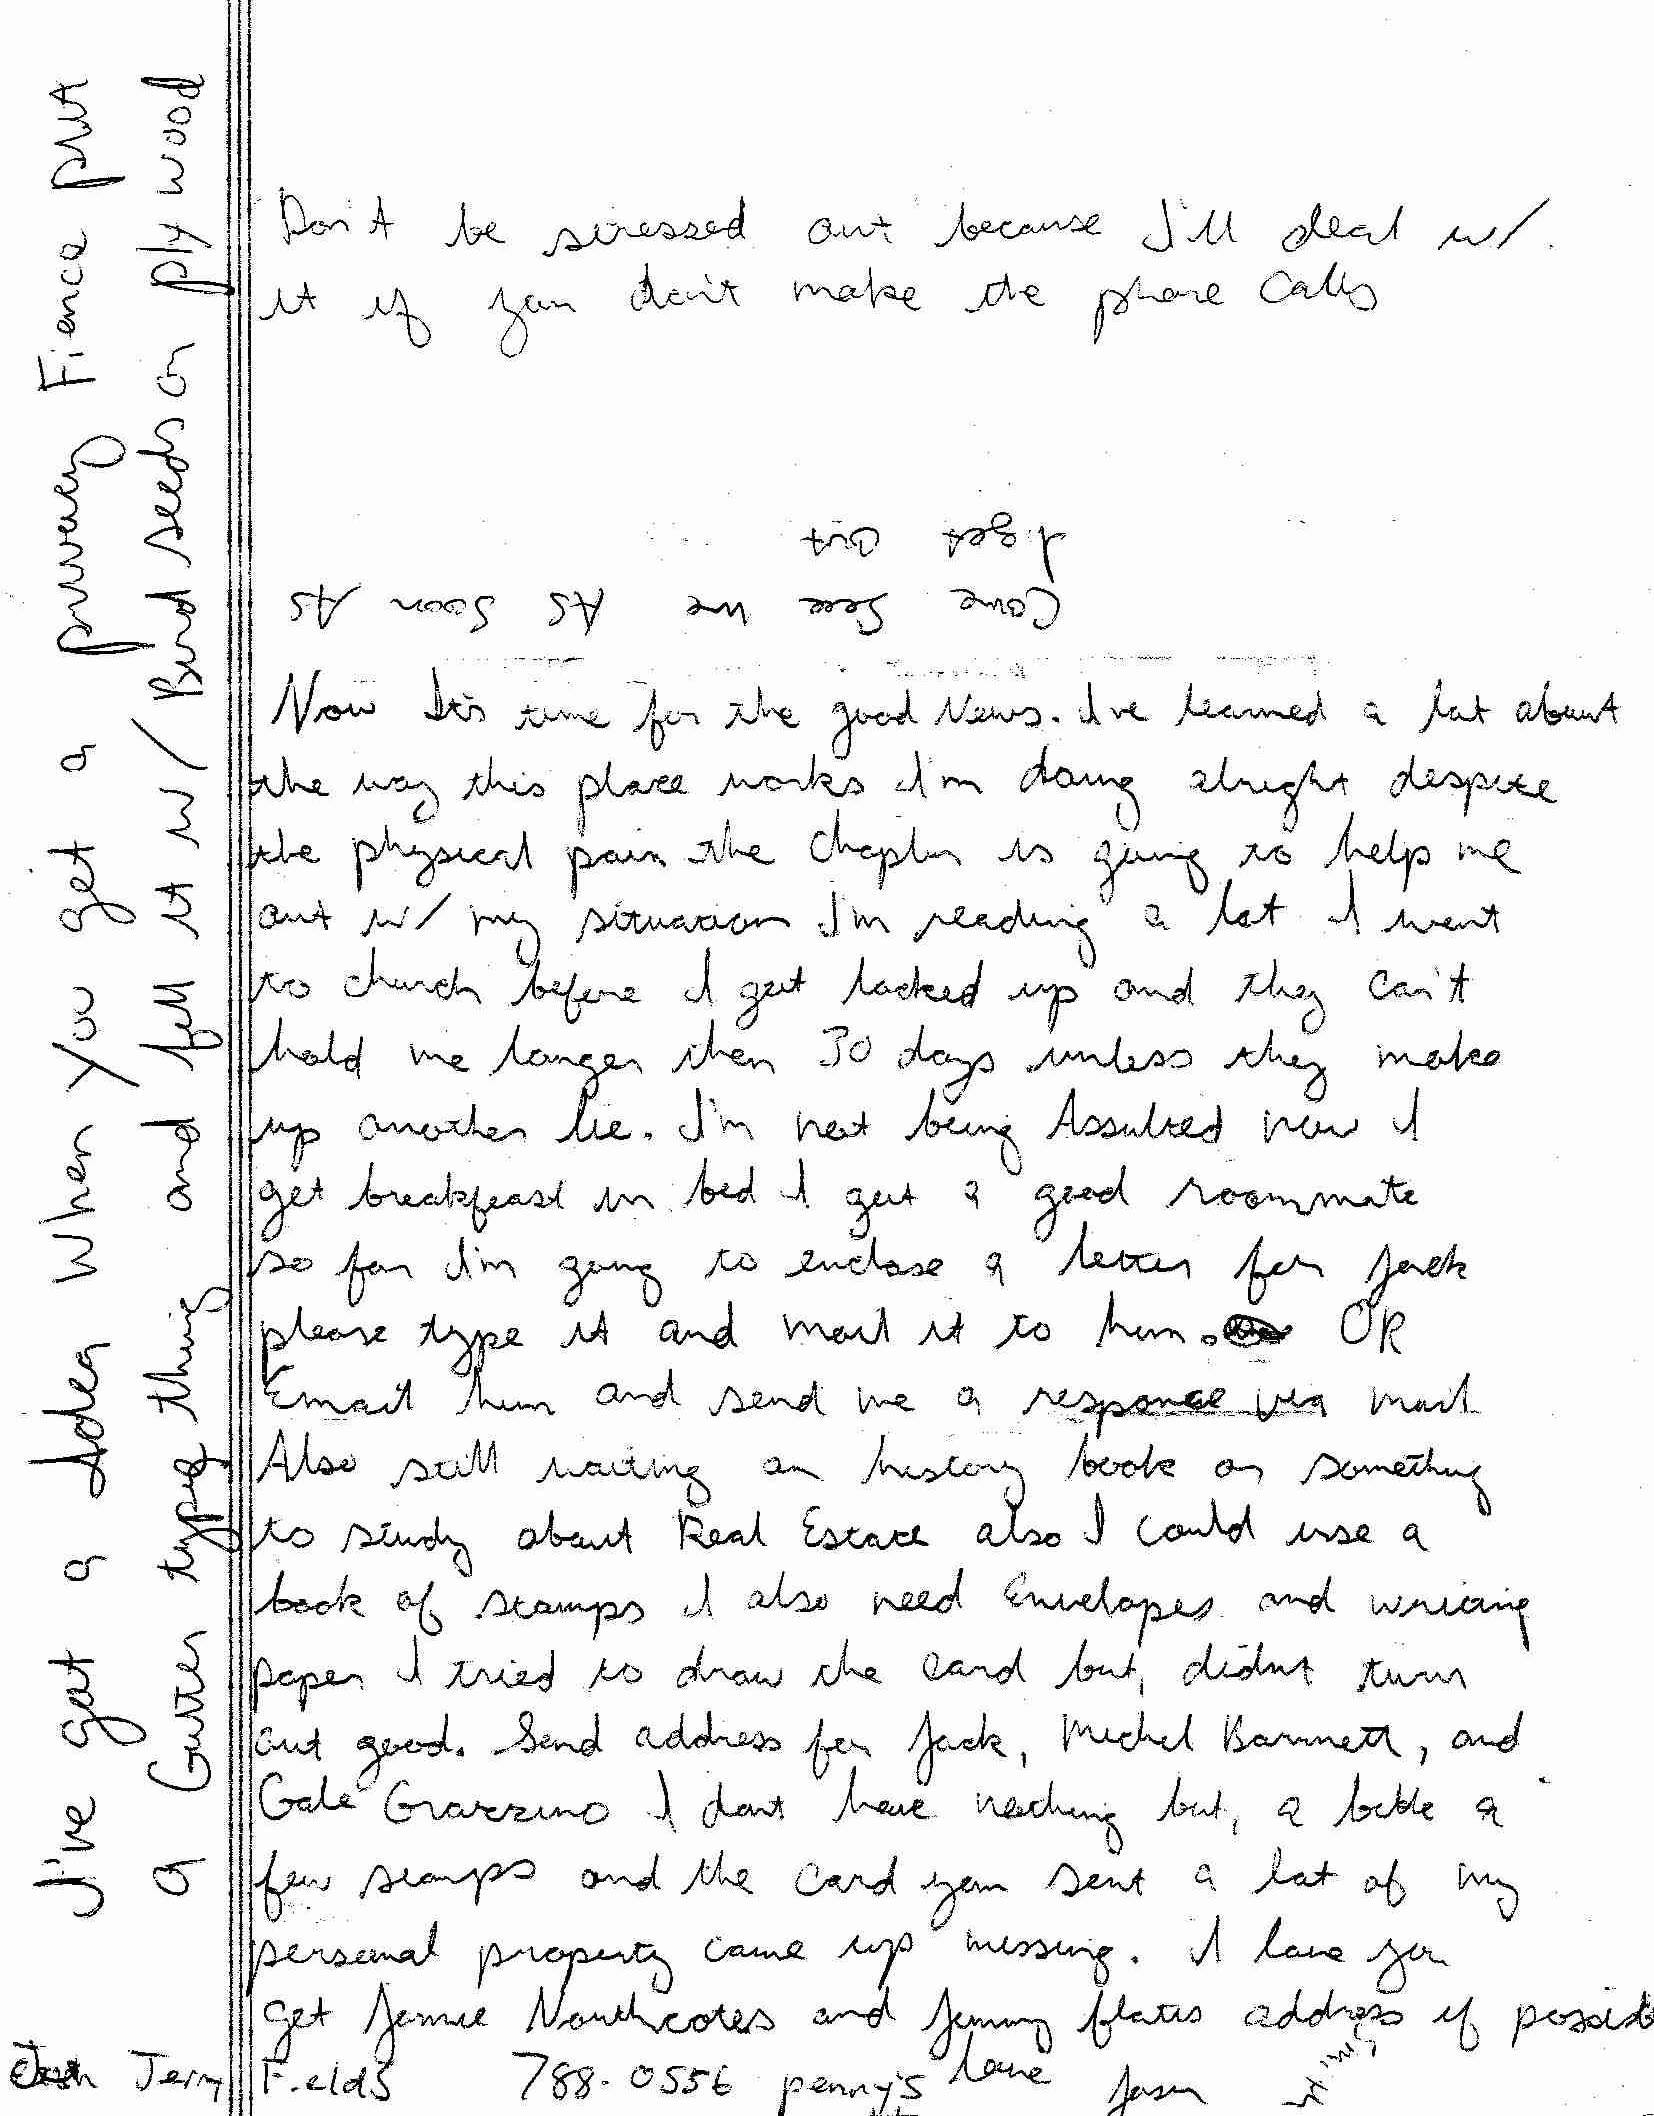 Don't be stressed out because I'll deal w/
it if you don't make the phone calls
Come See me AS Soon AS
I get Out
Now It's time for the good News. I've learned a lot about
the way this place works I'm doing alright despite
the physical pain the Chaplin is going to help me
out w/ my situation I'm reading a lot I went
to church before I got locked up and they can't
hold me longer then 30 days unless they make
up another lie. I'm not being Assulted now I
get breakfeast in bed I got a good roommate
so far I'm going to enclose a letter for Jack
please type it and mail it to him. OR
Email him and send me a response via mail
Also still waiting on history book or something
to study about Real Estate also I could use a
book of stamps I also need Envelopes and writing
paper I tried to draw the card but, didnt turn
out good. Send address for Jack, Michel Barnnett, and
Gale Grazzino I dont have nothing but, a bible a
few stamps and the card you sent a lot of my
personal property came up missing. I love you
get Jamie Northcotes and Jimmy flatts address if possib
Jerry Fields 788-0556 penny's love Jason
I've got a Idea When You get a privacy Fience put
a Gutter type thing and fill it w/ Bird seeds on plywood